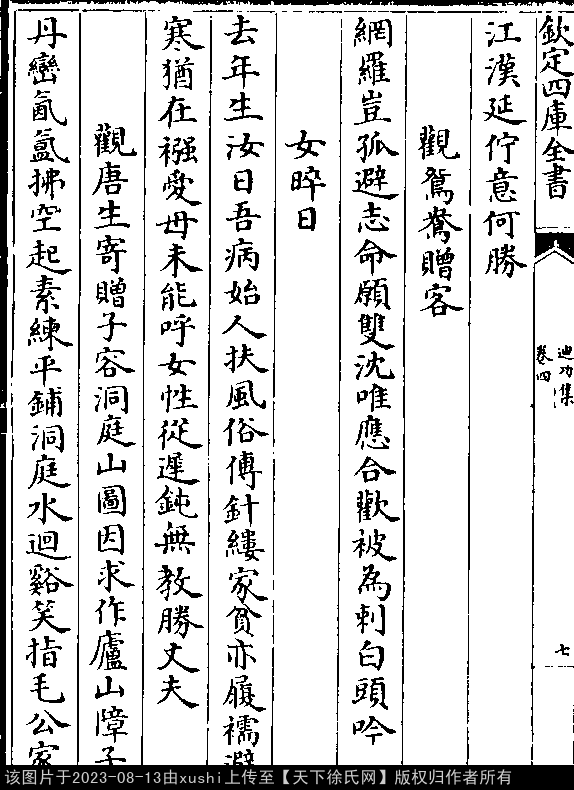 欽定四庫全書
迪功集
卷四
七
江漢延佇意何勝
觀鴛鴦贈客
網羅豈孤避志命願雙沈唯應合歡被為刺白頭吟
女晬日
去年生汝日吾病始人扶風俗傅針縷家貧亦履襦避
寒猶在襁愛母未能呼女性從遲鈍無教勝丈夫
觀唐生寄贈子容洞庭山圖因求作廬山障子
丹巒氤氳拂空起素練平鋪洞庭水迴谿笑指毛公家
该图片于2023-08-13由xushi上传至【天下徐氏网】版权归作者所有